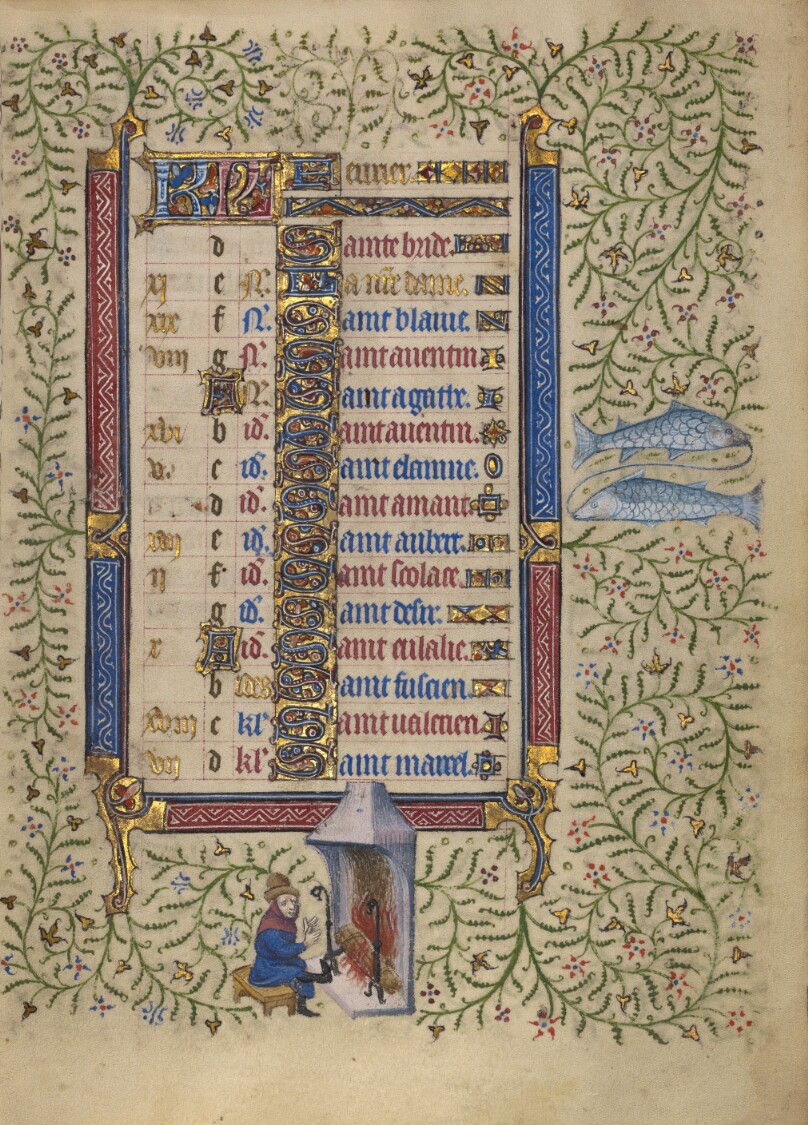 KL Feurier.
d Sainte bride.
xi e N. La n're dame.
xix f N. Saint blaiue.
viii g N. Saint auentin
A N. Saint agathe.
xvi b id'. Saint auentin.
v. c id'. Saint
d id'. Saint amant
xiii e id'. Saint aubert.
ii f id'. Saint scolace.
g id'. Saint desir.
x A id'. Saint eulalie.
b ides Saint fuscien.
xviii c kl' Saint
vii d kl' Saint marcel.